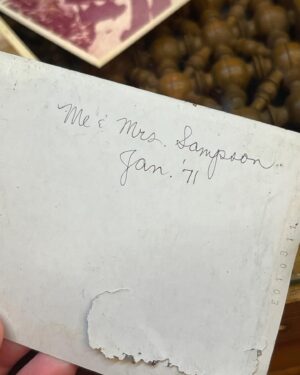 Me & Mrs. Sampson
Jan. '71